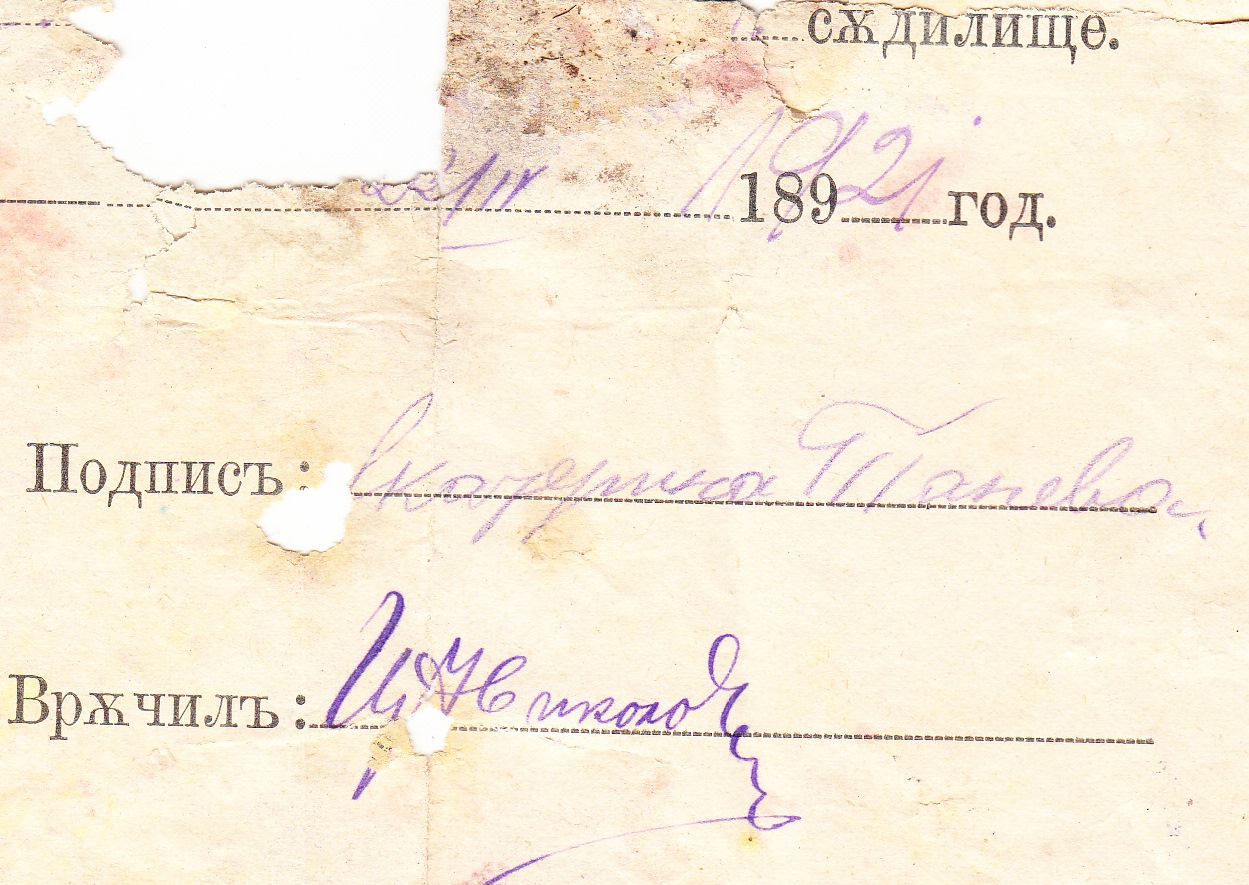 сѫдилище.
22/IV 1921 189 год.
Подписъ: Екатерина Танева.
Врѫчилъ: Николов